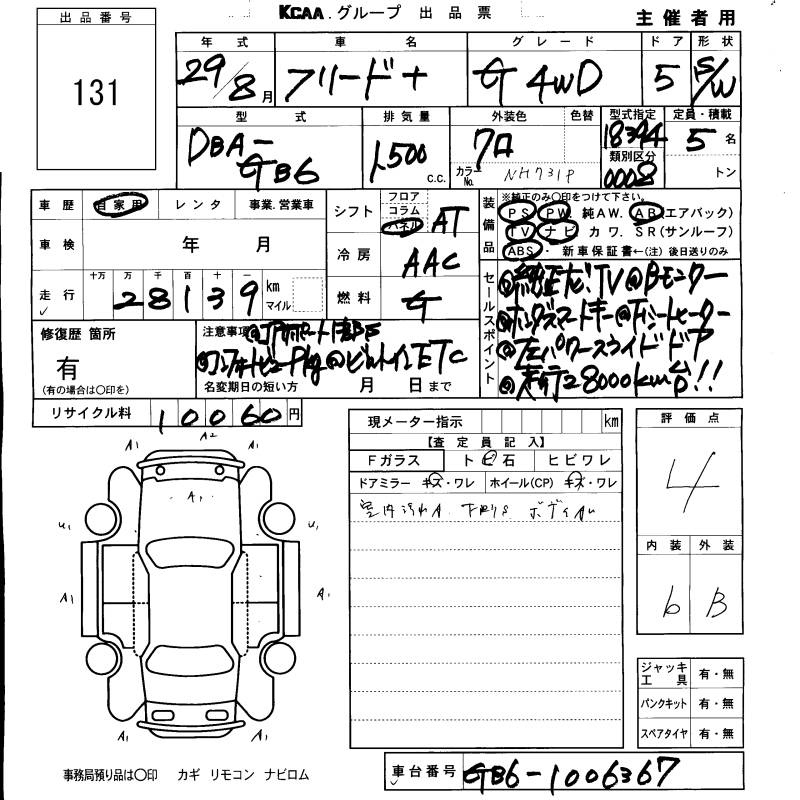 出品番号
131
KCAA.グループ 出品票
主催者用
年式 車名 グレード ドア 形状
29/8月 フリード+ G 4WD 5 S/W
型式 排気量 外装色 色替 型式指定 定員・積載
DBA-GB6 1500 c.c. クロ 18394 5名
カラーNo. NH731P 類別区分 0008 トン
車歴 自家用 レンタ 事業.営業車
シフト フロア コラム パネル AT
車検 年 月
冷房 AAC
走行 十万 万 千 百 十 一
28139 km マイル
燃料 G
装備品
※純正のみ○印をつけて下さい。
PS PW. 純AW. AB(エアバック)
TV ナビ カワ. SR(サンルーフ)
ABS・新車保証書←(注)後日送りのみ
セールスポイント
◎純正ナビTV◎Bモニター
◎ホンダスマートキー◎Fシートヒーター
◎左パワースライドドア
◎走行28000km台!!
修復歴 箇所
有
(有の場合は○印を)
注意事項
◎コンフォートビューPkg◎ビルトインETC
名変期日の短い方 月 日まで
リサイクル料 10060円
現メーター指示 km
【査定員記入】
Fガラス ト ビ 石 ヒビワレ
ドアミラー キズ・ワレ ホイール(CP) キズ・ワレ
室内汚れA 下廻りS
評価点
4
内装 外装
b B
A1 A2 A1
A1
U1 U1
A1 A1
A1 A1
ジャッキ工具 有・無
パンクキット 有・無
スペアタイヤ 有・無
事務局預り品は○印 カギ リモコン ナビロム
車台番号 GB6-1006367